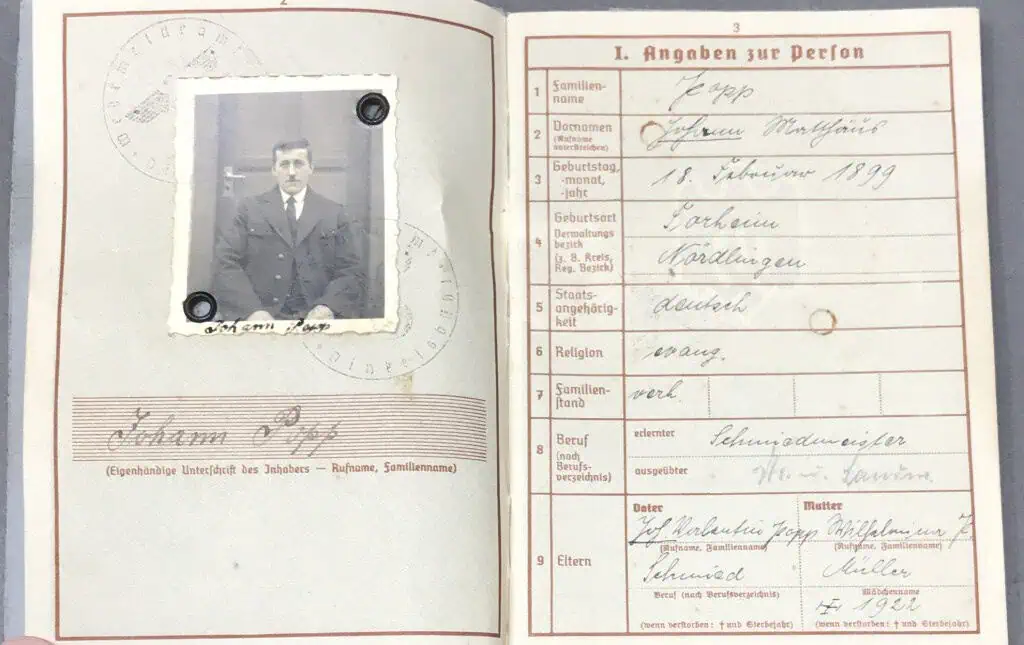 2
Wehrmeldeamt
Johann Popp
Johann Popp
(Eigenhändige Unterschrift des Inhabers — Rufname, Familienname)
3
I. Angaben zur Person
1 Familien-
name
Popp
2 Vornamen
(Rufname
unterstreichen)
Johann Matthäus
3 Geburtstag,
-monat,
-jahr
18. Februar 1899
4 Geburtsort
Verwaltungs
bezirk
(z. B. Kreis,
Reg. Bezirk)
Forheim
Nördlingen
5 Staats-
angehörig-
keit
deutsch
6 Religion
evang.
7 Familien-
stand
verh.
8 Beruf
(nach
Berufs-
verzeichnis)
erlernter
Schmiedmeister
ausgeübter
9 Eltern
Vater
Joh Valentin Popp
(Rufname, Familienname)
Schmied
Beruf (nach Berufsverzeichnis)
(wenn verstorben: † und Sterbejahr)
Mutter
Wilhelmina P.
(Rufname, Familienname)
Müller
Mädchenname
† 1922
(wenn verstorben: † und Sterbejahr)